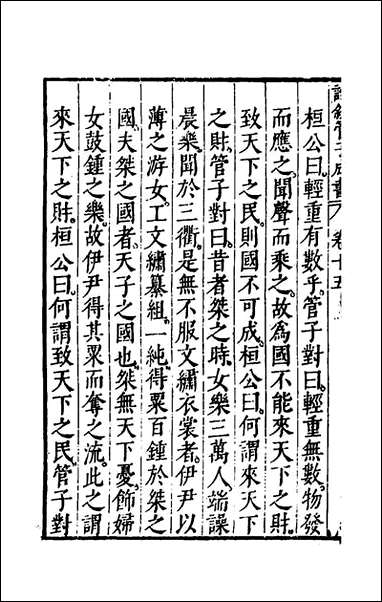 詮敘管子成書 卷十五
桓公曰。輕重有數乎。管子對曰。輕重無數。物發
而應之。聞聲而乘之。故爲國不能來天下之財。
致天下之民。則國不可成。桓公曰。何謂來天下
之財。管子對曰。昔者桀之時。女樂三萬人。端譟
晨樂。聞於三衢。是無不服文繡衣裳者。伊尹以
薄之游女。工文繡纂組。一純。得粟百鍾於桀之
國。夫桀之國者。天子之國也。桀無天下憂。飾婦
女鼓鍾之樂。故伊尹得其粟而奪之流。此之謂
來天下之財。桓公曰。何謂致天下之民。管子對